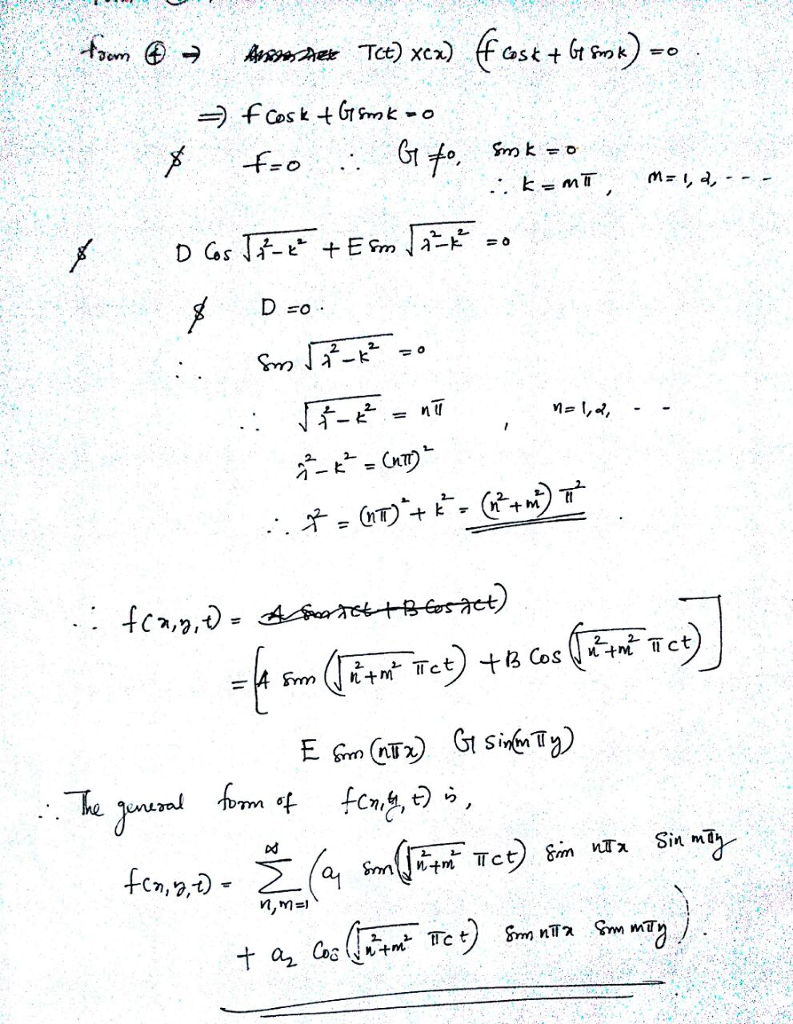 from ④ ⇒ T(t) X(x) (F cos k + G sin k) = 0
⇒ F cos k + G sin k = 0
& F = 0 ∴ G ≠ 0, sin k = 0
∴ k = mπ, m = 1, 2, - - -
& D cos √λ²-k² + E sin √λ²-k² = 0
& D = 0.
∴ sin √λ²-k² = 0
∴ √λ²-k² = nπ , n = 1, 2, - -
λ²-k² = (nπ)²
∴ λ² = (nπ)² + k² = (n²+m²) π² .
∴ f(x,y,t) = A sin λct + B cos λct)
= [A sin (√n²+m² πct) + B cos (√n²+m² πct)]
E sin (nπx) G sin(mπy)
∴ The general form of f(x,y,t) is,
f(x,y,t) = ∞ Σ n,m=1 (a₁ sin(√n²+m² πct) sin nπx sin mπy
+ a₂ cos (√n²+m² πct) sin nπx sin mπy).